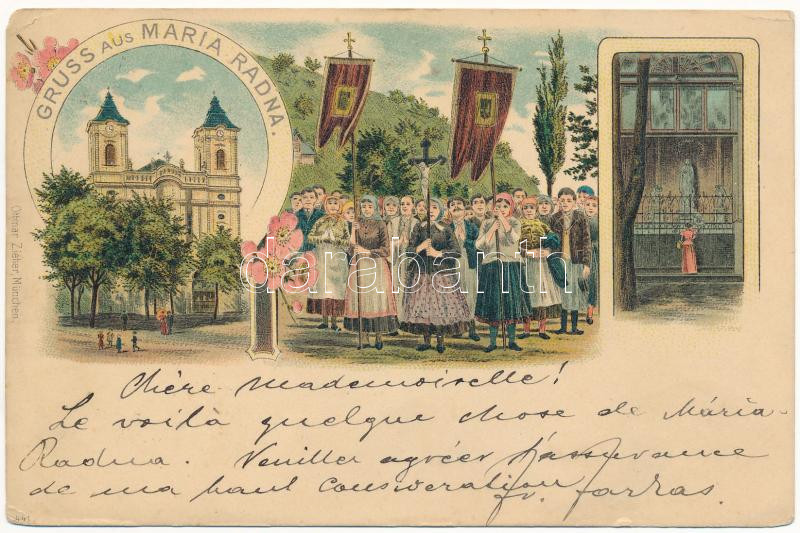 GRUSS AUS MARIA RADNA.
Ottmar Zieher, München
darabanth
Chère Mademoiselle!
Le voilà quelque chose de Mária-
Radna. Veuiller agréer l'assurance
de ma haut consideration
fv. farras.
441